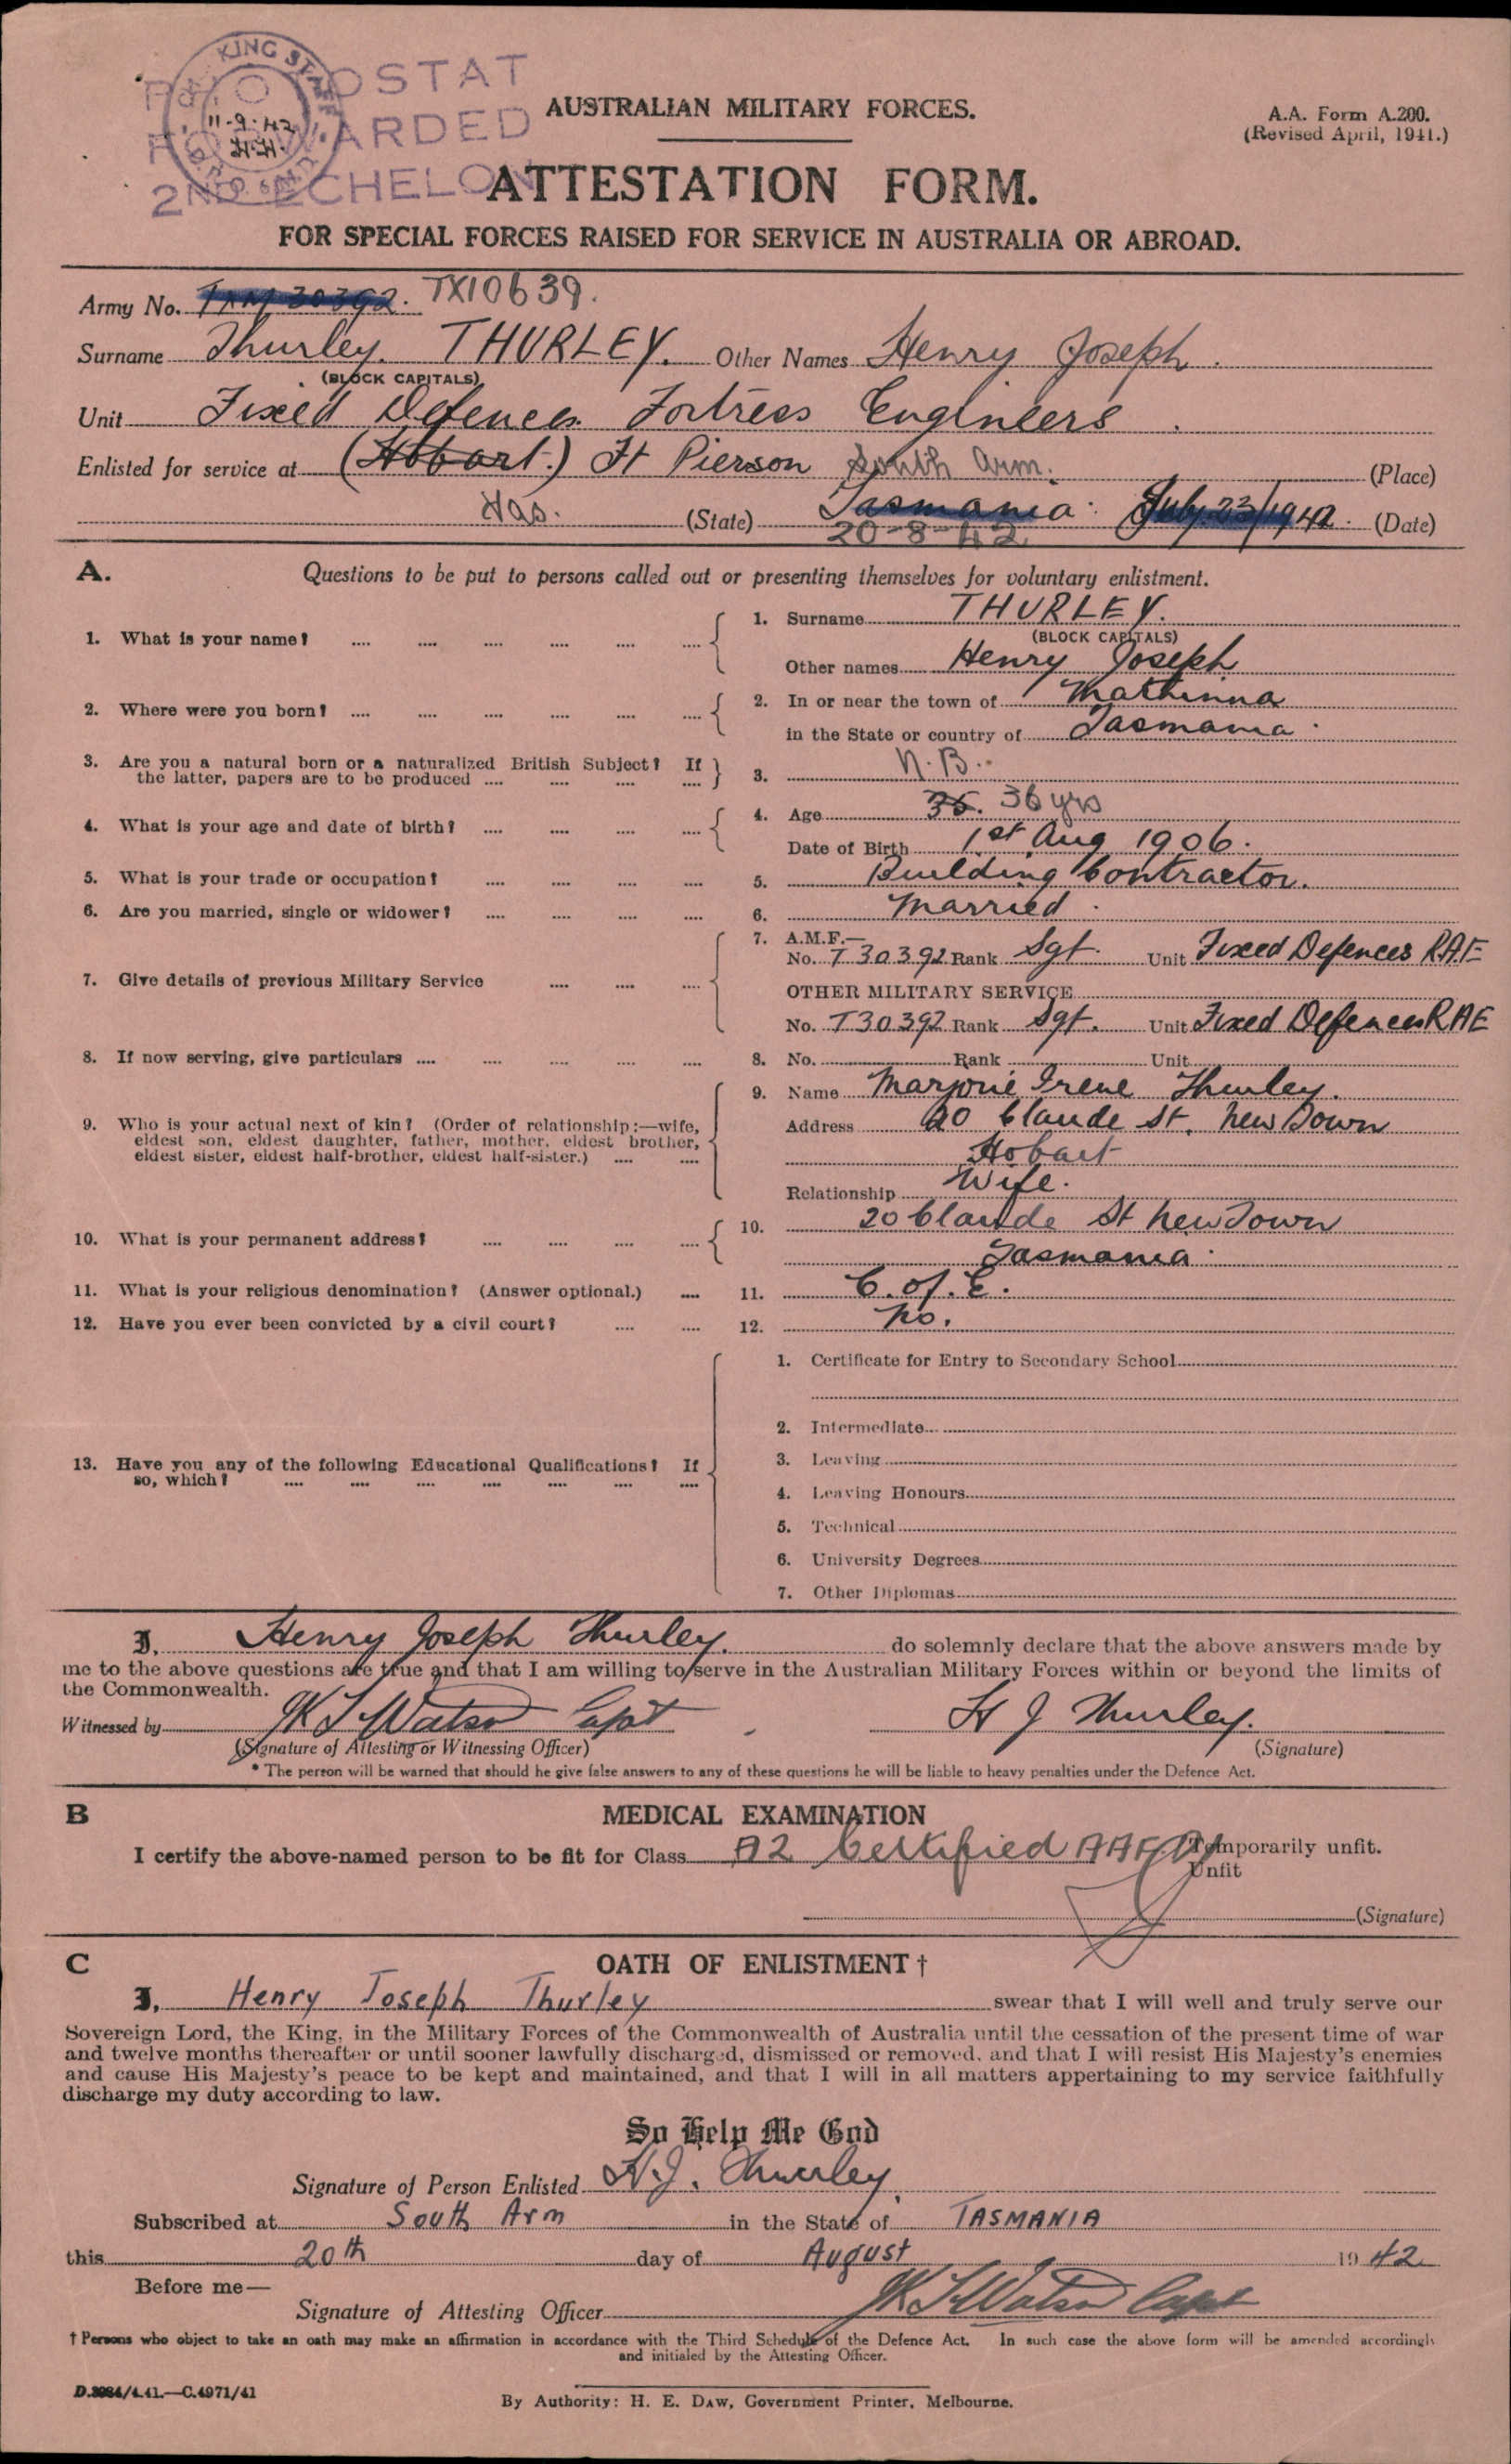 PHOTOSTAT
FORWARDED
2ND ECHELON
KING ST
11-9-42
AUSTRALIAN MILITARY FORCES.
A.A. Form A.200.
(Revised April, 1941.)
ATTESTATION FORM.
FOR SPECIAL FORCES RAISED FOR SERVICE IN AUSTRALIA OR ABROAD.
Army No. 30392. TX10639.
Surname Thurley. THURLEY. Other Names Henry Joseph.
(BLOCK CAPITALS)
Unit Fixed Defences Fortress Engineers.
Enlisted for service at (Hobart.) Ft Pierson South Arm. (Place)
Tas. (State) Tasmania. July 23/1942. (Date)
20-8-42
A. Questions to be put to persons called out or presenting themselves for voluntary enlistment.
1. What is your name? 1. Surname THURLEY.
(BLOCK CAPITALS)
Other names Henry Joseph
2. Where were you born? 2. In or near the town of Mathinna
in the State or country of Tasmania.
3. Are you a natural born or a naturalized British Subject? If
the latter, papers are to be produced 3. N.B.
4. What is your age and date of birth? 4. Age 35. 36 yrs
Date of Birth 1st Aug 1906.
5. What is your trade or occupation? 5. Building Contractor.
6. Are you married, single or widower? 6. Married.
7. Give details of previous Military Service 7. A.M.F.—
No. T30392 Rank Sgt. Unit Fixed Defences RAE
OTHER MILITARY SERVICE
No. T30392 Rank Sgt. Unit Fixed Defences RAE
8. If now serving, give particulars 8. No. Rank Unit
9. Who is your actual next of kin? (Order of relationship:—wife,
eldest son, eldest daughter, father, mother, eldest brother,
eldest sister, eldest half-brother, eldest half-sister.)
9. Name Marjorie Irene Thurley.
Address 20 Claude St. New Town
Hobart
Relationship Wife.
10. What is your permanent address? 10. 20 Claude St New Town
Tasmania.
11. What is your religious denomination? (Answer optional.) 11. C. of. E.
12. Have you ever been convicted by a civil court? 12. No.
13. Have you any of the following Educational Qualifications? If
so, which?
1. Certificate for Entry to Secondary School
2. Intermediate
3. Leaving
4. Leaving Honours
5. Technical
6. University Degrees
7. Other Diplomas
I, Henry Joseph Thurley. do solemnly declare that the above answers made by
me to the above questions are true and that I am willing to serve in the Australian Military Forces within or beyond the limits of
the Commonwealth.
Witnessed by Watson Capt H J Thurley.
(Signature of Attesting or Witnessing Officer) (Signature)
* The person will be warned that should he give false answers to any of these questions he will be liable to heavy penalties under the Defence Act.
B MEDICAL EXAMINATION
I certify the above-named person to be fit for Class A2 Certified Temporarily unfit.
Unfit
(Signature)
C OATH OF ENLISTMENT †
I, Henry Joseph Thurley swear that I will well and truly serve our
Sovereign Lord, the King, in the Military Forces of the Commonwealth of Australia until the cessation of the present time of war
and twelve months thereafter or until sooner lawfully discharged, dismissed or removed, and that I will resist His Majesty's enemies
and cause His Majesty's peace to be kept and maintained, and that I will in all matters appertaining to my service faithfully
discharge my duty according to law.
So Help Me God
Signature of Person Enlisted H.J. Thurley.
Subscribed at South Arm in the State of TASMANIA
this 20th day of August 1942
Before me—
Signature of Attesting Officer Watson Capt
† Persons who object to take an oath may make an affirmation in accordance with the Third Schedule of the Defence Act. In such case the above form will be amended accordingly
and initialed by the Attesting Officer.
D.3984/4.41.—C.4971/41
By Authority: H. E. Daw, Government Printer, Melbourne.